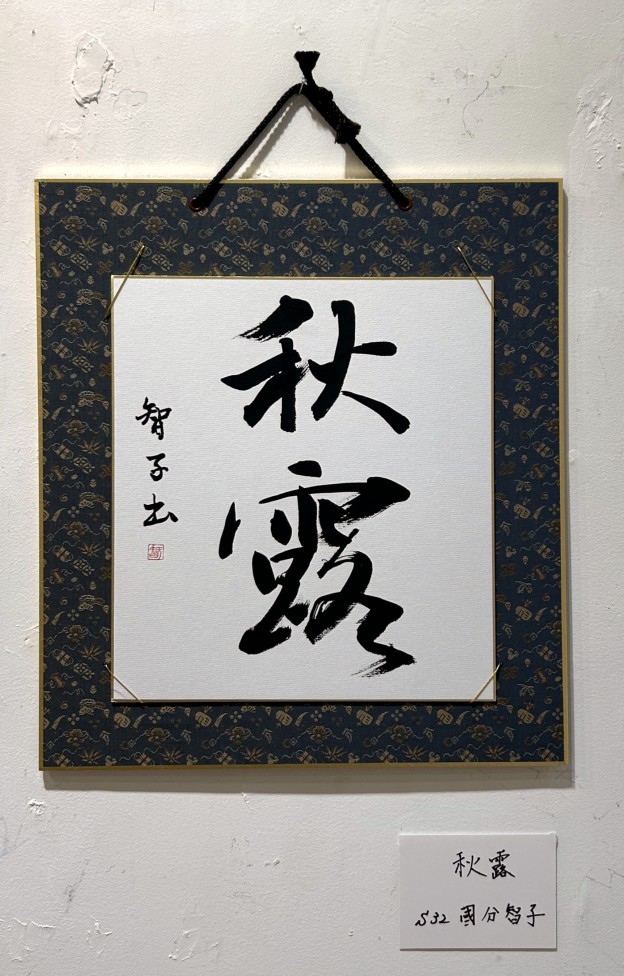 秋露
智子书
秋露
S32 國分智子